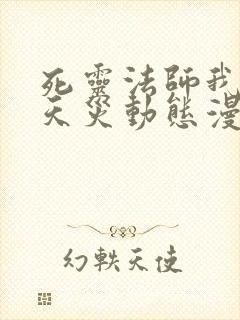 死靈法師我
天災動態漫
幻軼天使